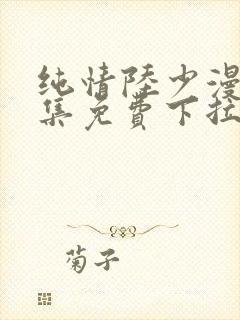 纯情陆少漫
集免费下拉
菊子